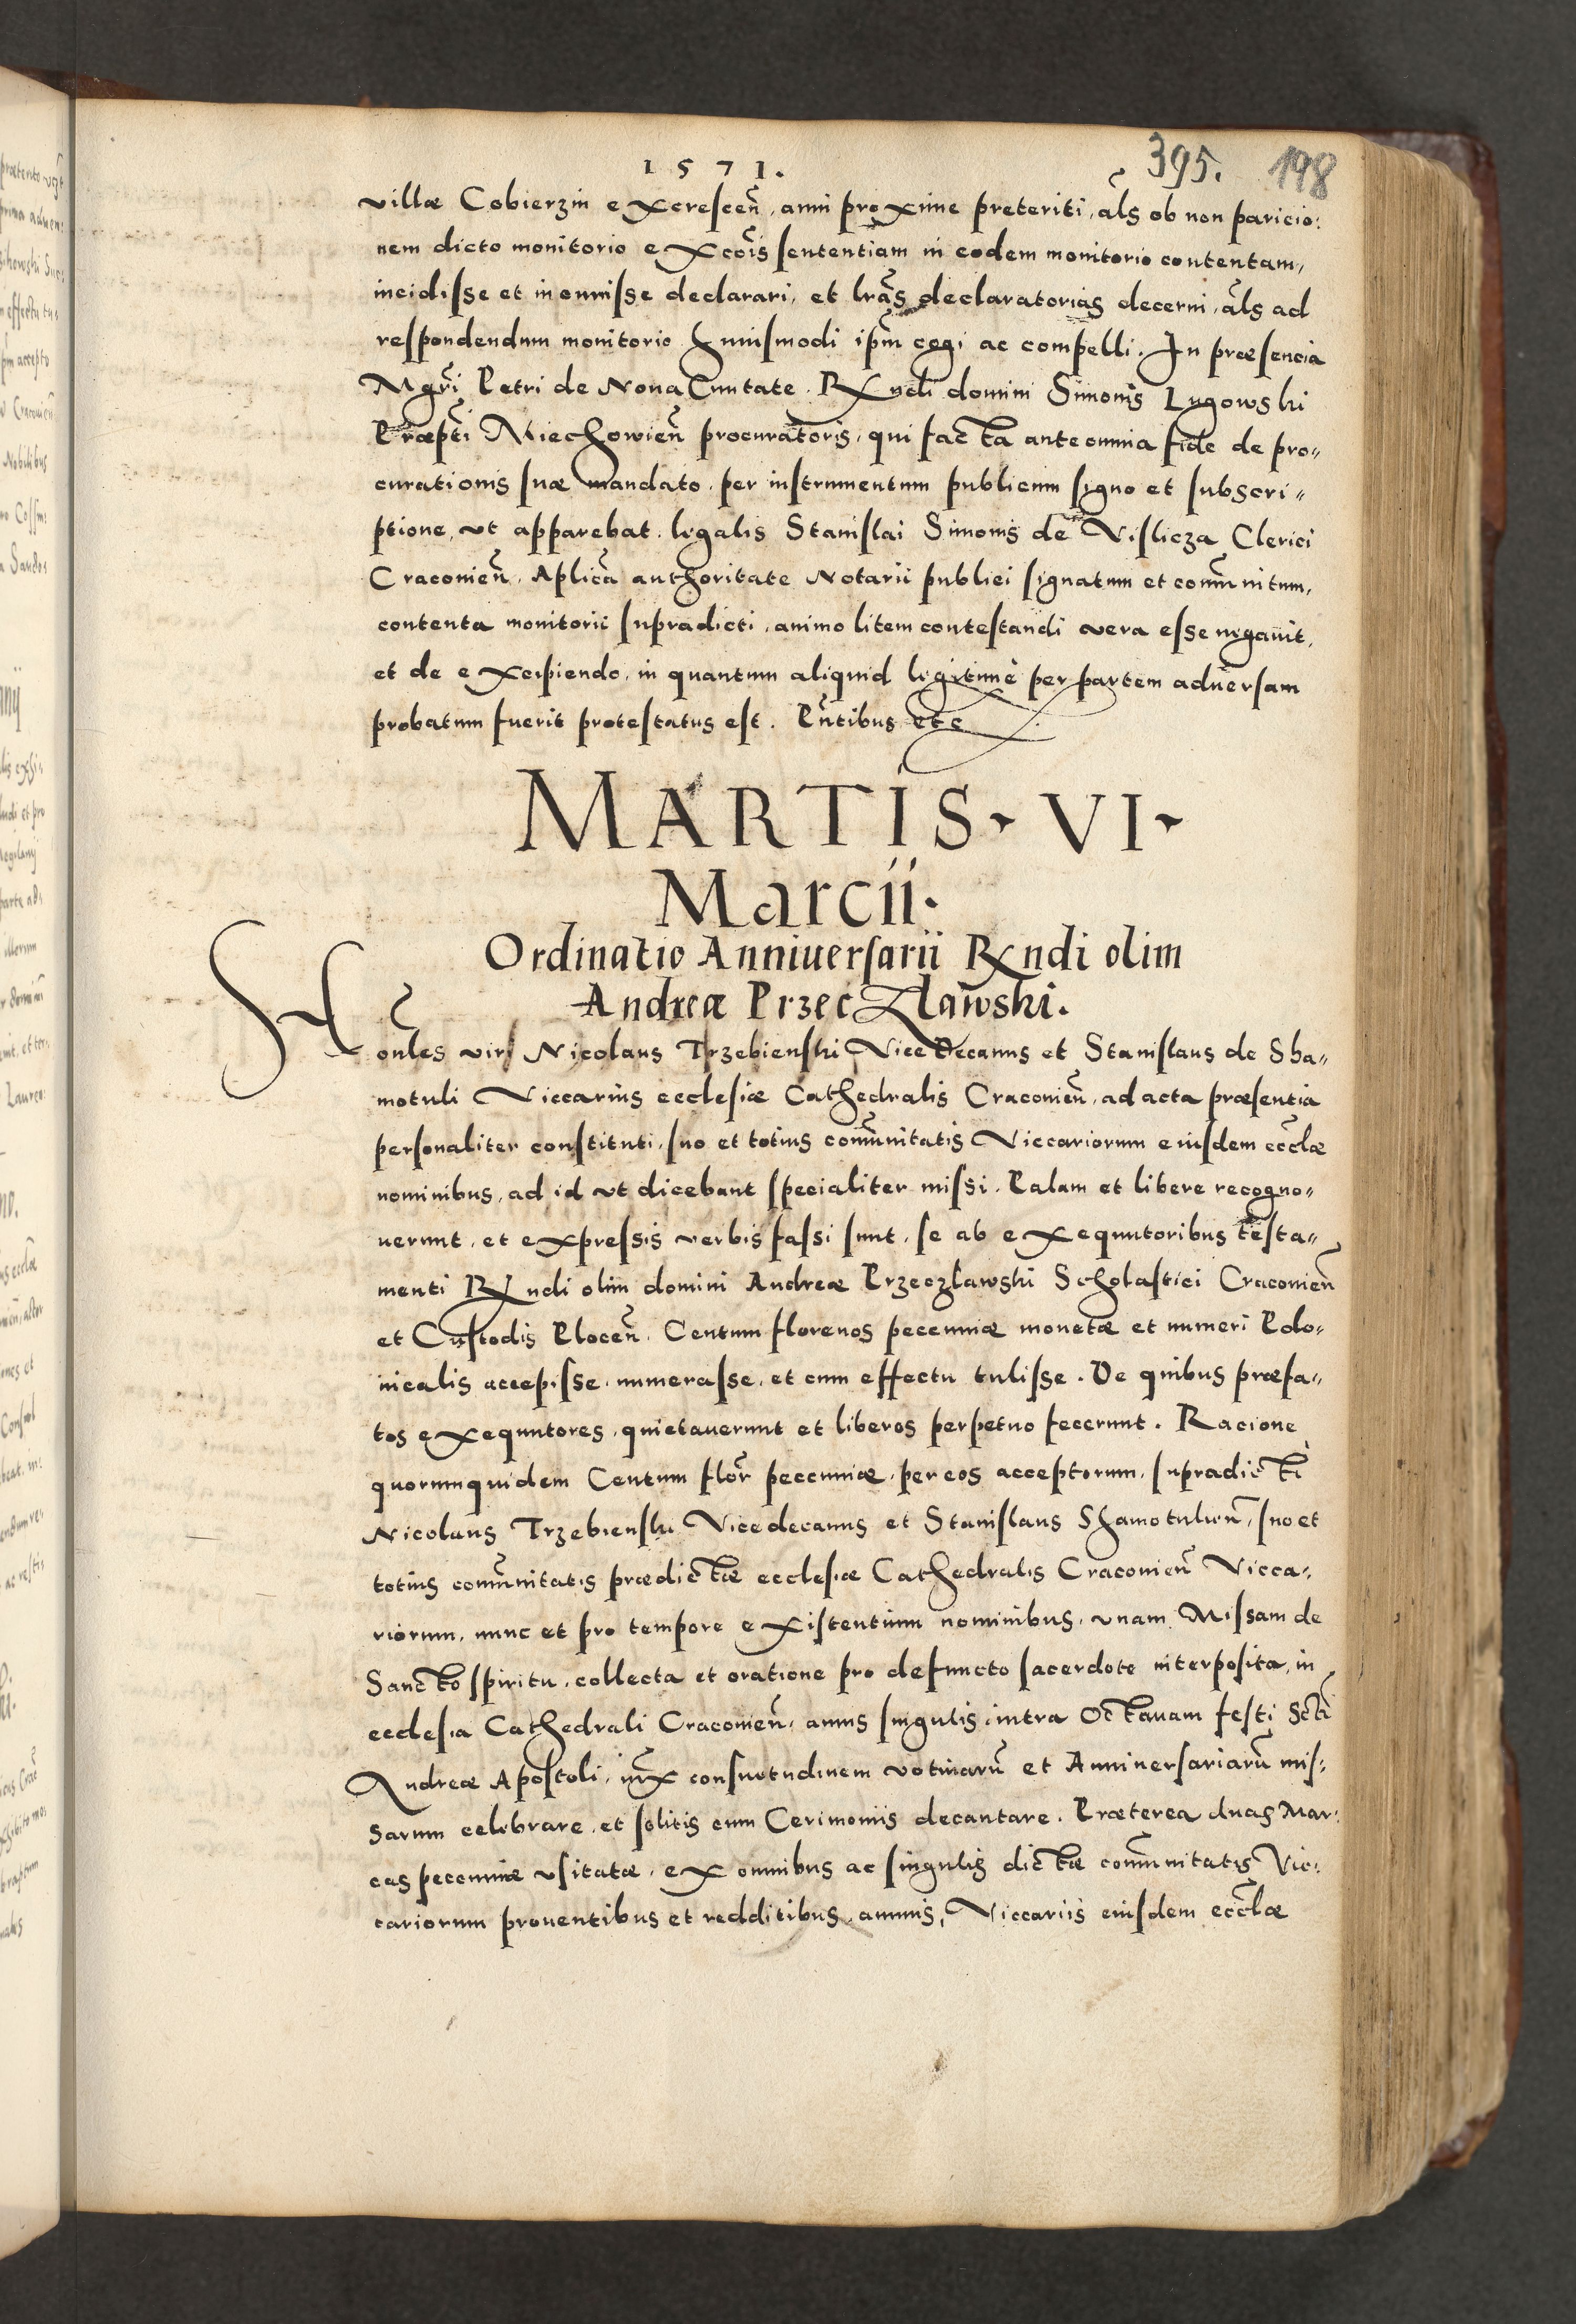 1571.
395. 198
villæ Cobierzin excresceñ, anni proxime preteriti, als ob non paricio:
nem dicto monitorio excõis sententiam in eodem monitorio contentam,
incidisse et incurrisse declarari, et lras declaratorias decerni, als ad
respondendum monitorio huiusmodi ipm cogi ac compelli. In præsencia
Mgri Petri de Nona Ciuitate Rxndi domini Simonis Lugowski
Præpti Miechowieñ procuratoris, qui facta ante omnia fide de pro„
curationis suæ mandato, per instrumentum publicum signo et subscri„
ptione, ut apparebat, legalis Stanislai Simonis de Vislicza Clerici
Cracouieñ, Aplica authoritate Notarii publici signatum et comunitum,
contenta monitorii supradicti, animo litem contestandi vera esse negauit,
et de excipiendo, in quantum aliquid legitimè per partem aduersam
probatum fuerit protestatus est. Pntibus etc
MARTIS. VI.
Marcii.
Ordinatio Anniuersarii Rxndi olim
Andreæ Przeczlawski.
Honles viri Nicolaus Trzebienski Vicedecanus et Stanislaus de Sha„
motuli Viccarius ecclesiæ Cathedralis Cracouieñ, ad acta præsentia
personaliter constituti, suo et totius comunitatis Viccariorum eiusdem ecclæ
nominibus, ad id ut dicebant specialiter missi. Palam et libere recogno„
uerunt, et expressis verbis fassi sunt, se ab exequutoribus testa„
menti Rxndi olim domini Andreæ Przeczlawski Scholastici Cracouieñ
et Custodis Ploceñ, Centum florenos pecuniæ monetæ et numeri Polo„
nicalis accepisse, numerasse, et cum effectu tulisse. De quibus præfa„
tos exequutores, quietauerunt et liberos perpetuo fecerunt. Racione
quorumquidem Centum flor pecuniæ, per eos acceptorum, supradicti
Nicolaus Trzebienski Vicedecanus et Stanislaus Shamotulieñ, suo et
totius comunitatis prædictæ ecclesiæ Cathedralis Cracouieñ Vicca„
riorum, nunc et pro tempore existentium nominibus, unam Missam de
Sancto spiritu, collecta et oratione pro defuncto sacerdote interposita, in
ecclesia Cathedrali Cracouieñ, annis singulis, intra Octauam festi Scti
Andreæ Apostoli, iux consuetudinem votiuarũ et Anniuersariarũ mis„
sarum celebrare, et solitis cum Cerimoniis decantare. Præterea duas Mar„
cas pecuniæ usitatæ, ex omnibus ac singulis dictæ comunitatis Vic„
cariorum prouentibus et redditibus, annuis, Viccariis eiusdem ecclæ